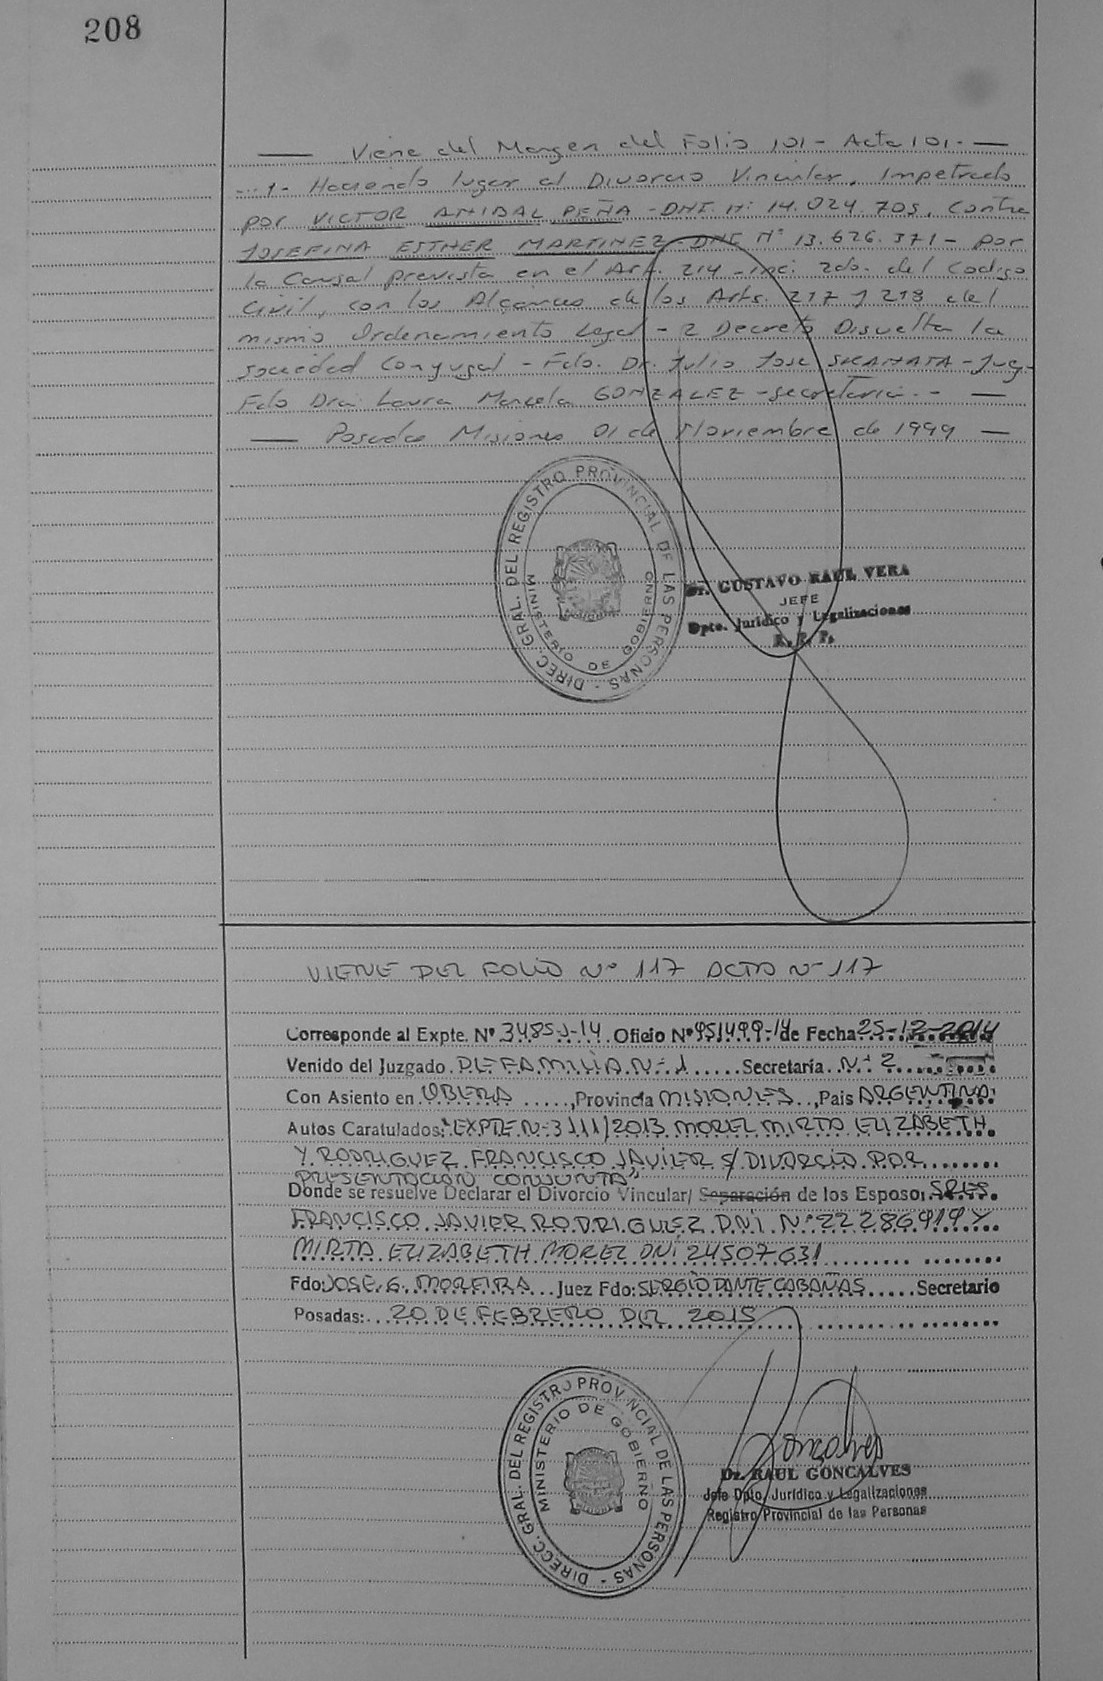 208
— Viene del Margen del Folio 101 - Acta 101 - —
...1- Haciendo lugar al Divorcio Vincular, Impetrado
por VICTOR ANIBAL PEÑA - DNI. Nº 14.024.705, contra
JOSEFINA ESTHER MARTINEZ - DNI Nº 13.626.371 - por
la Causal prevista en el Art. 214 - inc. 2do. del Codigo
Civil, con los Alcances de los Arts. 217 y 218 del
mismo Ordenamiento Legal - 2 Decreto Disuelta la
sociedad Conyugal - Fdo. Dr. Julio Jose - Juez -
Fdo Dra: Laura Marcela GONZALEZ - secretaria. - —
— Posadas Misiones 01 de Noviembre de 1999 —
DIREC. GRAL. DEL REGISTRO PROVINCIAL DE LAS PERSONAS -
MINISTERIO DE GOBIERNO
Dr. GUSTAVO RAUL VERA
JEFE
Dpto. Jurídico y Legalizaciones
R. P. P.
VIENE DEL FOLIO Nº 117 ACTA Nº 117
Corresponde al Expte. Nº 3485-J-14. Oficio Nº 951499-14 de Fecha 25-12-2014
Venido del Juzgado DE FAMILIA Nº 1 ..... Secretaría Nº 2
Con Asiento en OBERA ....., Provincia MISIONES .., Pais ARGENTINA
Autos Caratulados: "EXPTE Nº 3111/2013 MOREL MIRTA ELIZABETH
Y RODRIGUEZ FRANCISCO JAVIER S/ DIVORCIO POR
PRESENTACION CONJUNTA"
Donde se resuelve Declarar el Divorcio Vincular/ Separación de los Esposo: SRES.
FRANCISCO JAVIER RODRIGUEZ D.N.I. Nº 22286919 Y
MIRTA ELIZABETH MOREL DNI 24507631
Fdo: JOSE G. MOREIRA ... Juez Fdo: SERGIO DANTE CABAÑAS ..... Secretario
Posadas: ... 20 DE FEBRERO DEL 2015
DIRECC. GRAL. DEL REGISTRO PROVINCIAL DE LAS PERSONAS -
MINISTERIO DE GOBIERNO
Dr. RAUL GONCALVES
Jefe Dpto. Jurídico y Legalizaciones
Registro Provincial de las Personas